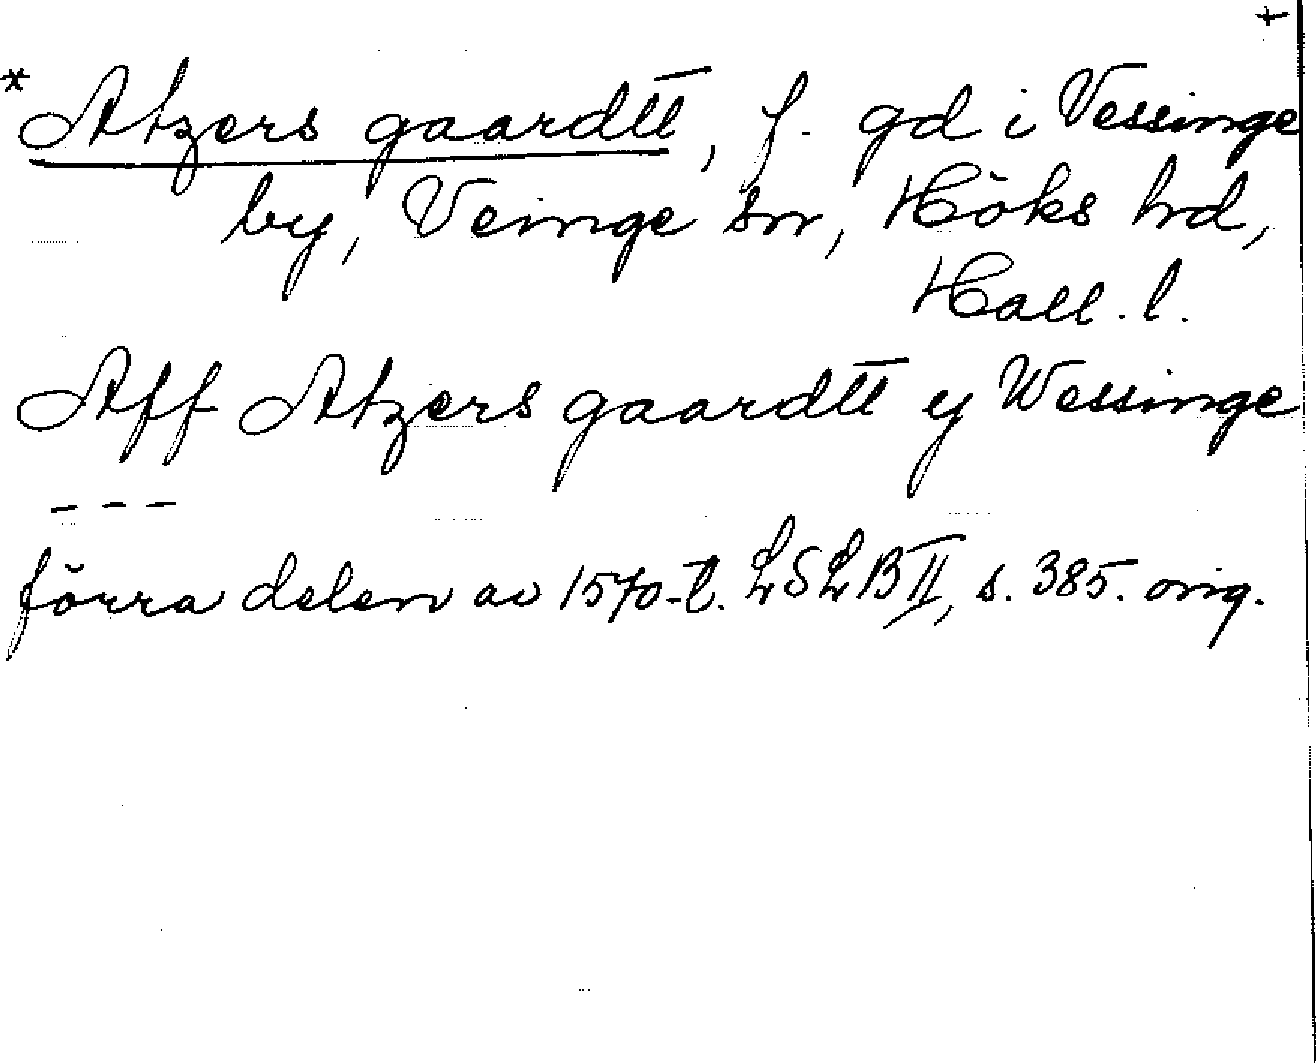 +
*Atzers gaardtt, f. gd i Vessinge
by, Veinge sn, Höks hd,
Hall. l.
Aff Atzers gaardtt y Wessinge
---
förra delen av 1570-t. LSLB II, s. 385. orig.